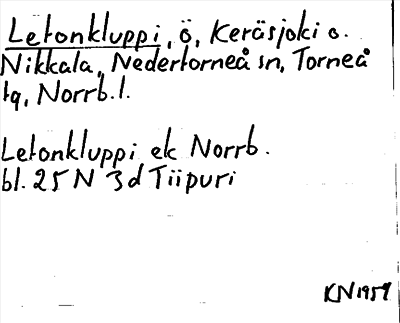 Letonkluppi, ö, Keräsjoki o.
Nikkala, Nedertorneå sn, Torneå
tg, Norrb. l.
Letonkluppi ek Norrb.
bl. 25 N 3d Tiipuri
KN 1959